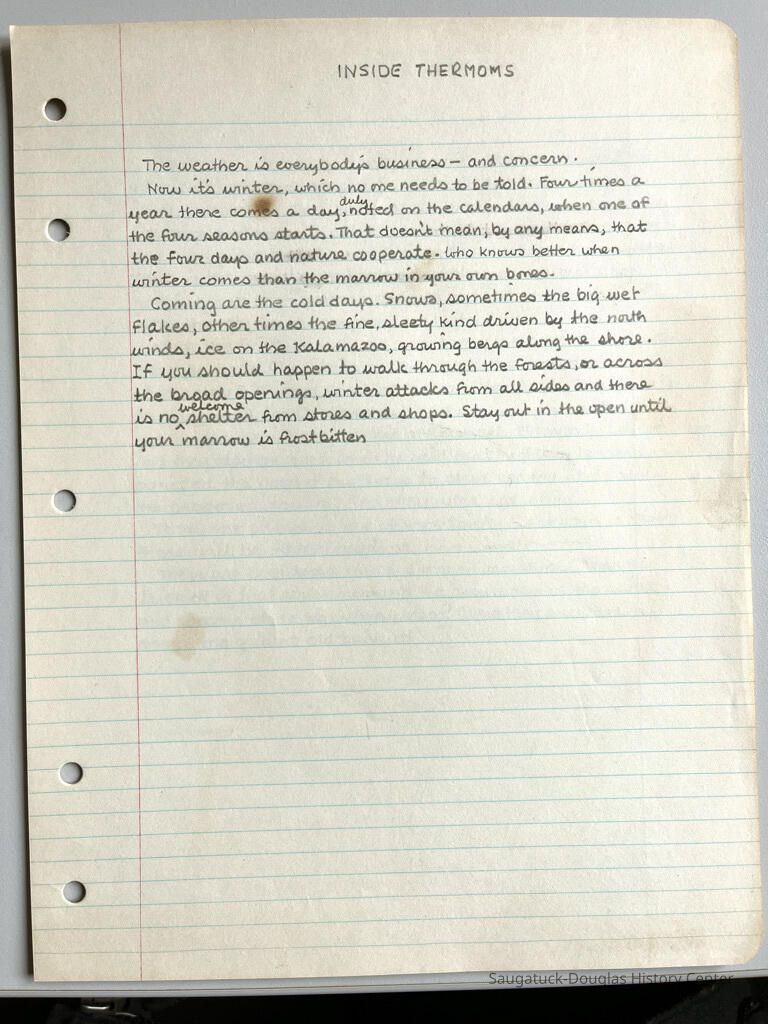 INSIDE THERMOMS
The weather is everybody's business — and concern.
Now it's winter, which no one needs to be told. Four times a
year there comes a day, duly noted on the calendars, when one of
the four seasons starts. That doesn't mean, by any means, that
the four days and nature cooperate. Who knows better when
winter comes than the marrow in your own bones.
Coming are the cold days. Snows, sometimes the big wet
flakes, other times the fine, sleety kind driven by the north
winds, ice on the Kalamazoo, growing bergs along the shore.
If you should happen to walk through the forests, or across
the broad openings, winter attacks from all sides and there
is no welcome shelter from stores and shops. Stay out in the open until
your marrow is frostbitten
Saugatuck-Douglas History Center